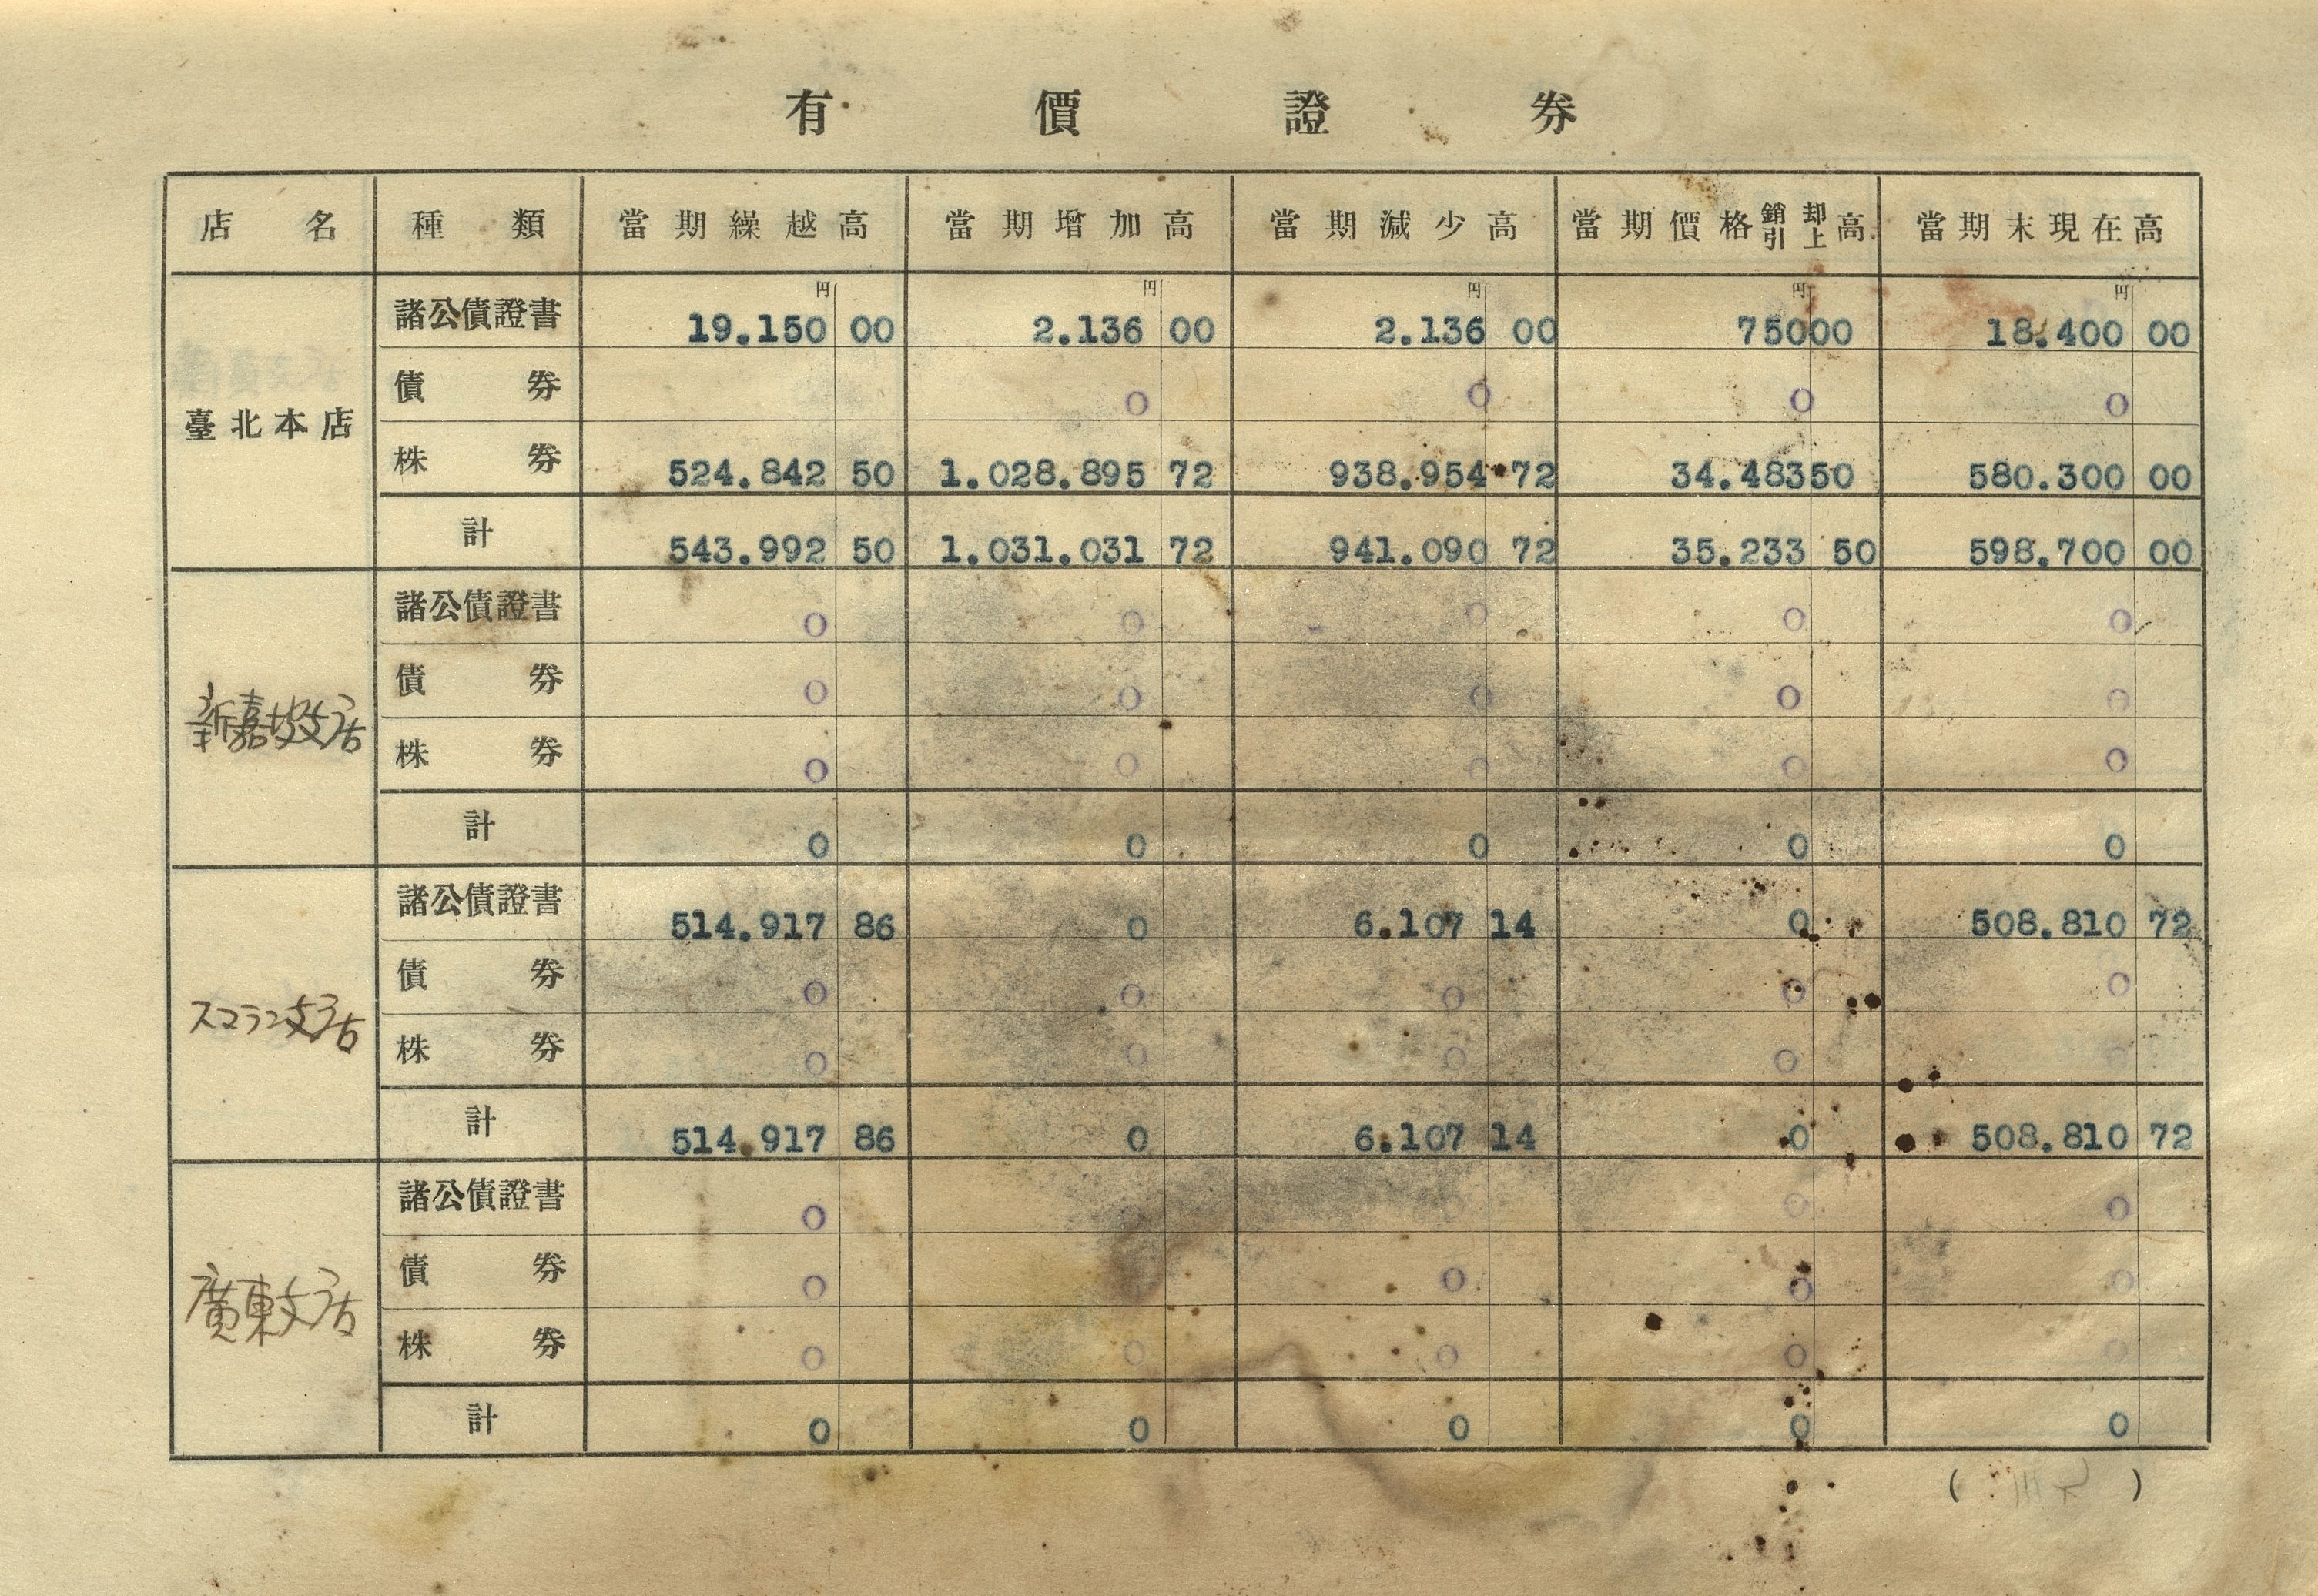 有價證券
店名 種類 當期繰越高 當期增加高 當期減少高 當期價格銷却引上高 當期末現在高
円 円 円 円 円
臺北本店
諸公債證書 19.150 00 2.136 00 2.136 00 75000 18.400 00
債券 0 0 0 0
株券 524.842 50 1.028.895 72 938.954 72 34.48350 580.300 00
計 543.992 50 1.031.031 72 941.090 72 35.233 50 598.700 00
新嘉坡支店
諸公債證書 0 0 0 0 0
債券 0 0 0 0 0
株券 0 0 0 0 0
計 0 0 0 0 0
スマラン支店
諸公債證書 514.917 86 0 6.107 14 0 508.810 72
債券 0 0 0 0 0
株券 0 0 0 0
計 514.917 86 0 6.107 14 0 508.810 72
廣東支店
諸公債證書 0 0 0
債券 0 0 0 0
株券 0 0 0 0 0
計 0 0 0 0 0
( )